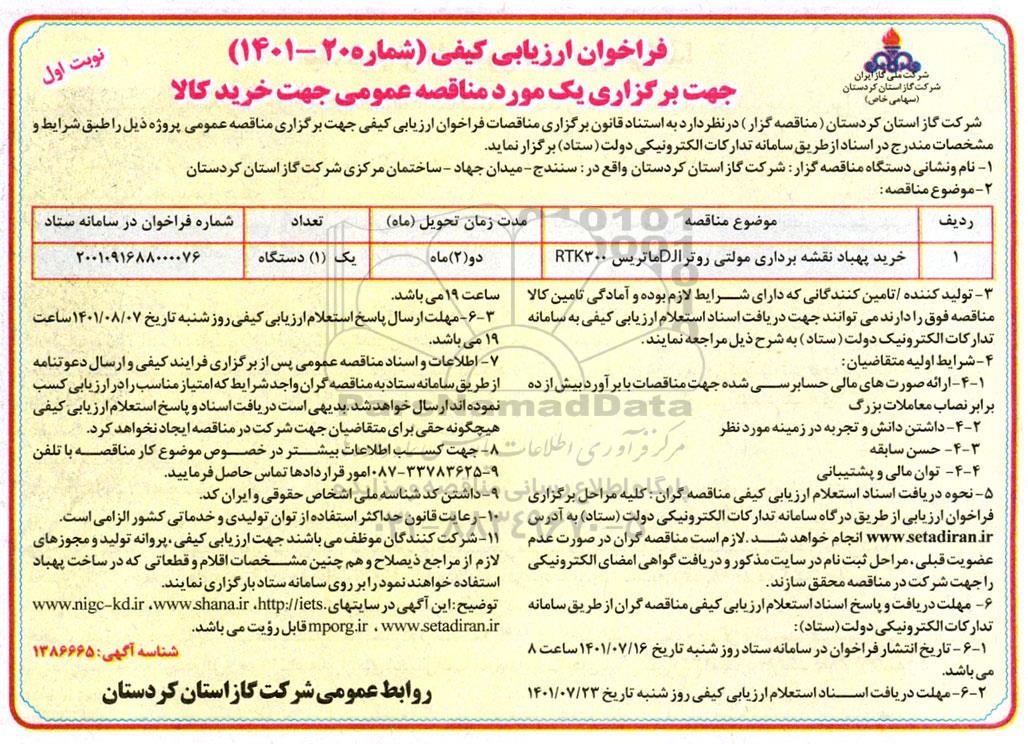 فراخوان ارزیابی کیفی (شماره ۲۰ – ۱۴۰۱)
جهت برگزاری یک مورد مناقصه عمومی جهت خرید کالا
نوبت اول
شرکت ملی گاز ایران
شرکت گاز استان کردستان
(سهامی خاص)
شرکت گاز استان کردستان (مناقصه گزار) در نظر دارد به استناد قانون برگزاری مناقصات فراخوان ارزیابی کیفی جهت برگزاری مناقصه عمومی پروژه ذیل را طبق شرایط و
مشخصات مندرج در اسناد از طریق سامانه تدارکات الکترونیکی دولت (ستاد) برگزار نماید.
۱- نام ونشانی دستگاه مناقصه گزار: شرکت گاز استان کردستان واقع در: سنندج-میدان جهاد -ساختمان مرکزی شرکت گاز استان کردستان
۲-موضوع مناقصه:
ردیف موضوع مناقصه مدت زمان تحویل (ماه) تعداد شماره فراخوان در سامانه ستاد
۱ خرید پهباد نقشه برداری مولتی روتر DJIماتریس ۳۰۰ RTK دو(۲)ماه یک (۱) دستگاه ۲۰۰۱۰۹۱۶۸۸۰۰۰۰۷۶
۳- تولید کننده /تامین کنندگانی که دارای شرایط لازم بوده و آمادگی تامین کالا
مناقصه فوق را دارند می توانند جهت دریافت اسناد استعلام ارزیابی کیفی به سامانه
تدارکات الکترونیک دولت (ستاد) به شرح ذیل مراجعه نمایند.
۴-شرایط اولیه متقاضیان:
۴-۱- ارائه صورت های مالی حسابرسی شده جهت مناقصات با برآورد بیش از ده
برابر نصاب معاملات بزرگ
۴-۲- داشتن دانش و تجربه در زمینه مورد نظر
۴-۳- حسن سابقه
۴-۴- توان مالی و پشتیبانی
۵- نحوه دریافت اسناد استعلام ارزیابی کیفی مناقصه گران: کلیه مراحل برگزاری
فراخوان ارزیابی از طریق درگاه سامانه تدارکات الکترونیکی دولت (ستاد) به آدرس
www.setadiran.ir انجام خواهد شد. لازم است مناقصه گران در صورت عدم
عضویت قبلی، مراحل ثبت نام در سایت مذکور و دریافت گواهی امضای الکترونیکی
را جهت شرکت در مناقصه محقق سازند.
۶- مهلت دریافت و پاسخ اسناد استعلام ارزیابی کیفی مناقصه گران از طریق سامانه
تدارکات الکترونیکی دولت (ستاد):
۶-۱- تاریخ انتشار فراخوان در سامانه ستاد روز شنبه تاریخ ۱۴۰۱/۰۷/۱۶ ساعت ۸
می باشد.
۶-۲-مهلت دریافت اسناد استعلام ارزیابی کیفی روز شنبه تاریخ ۱۴۰۱/۰۷/۲۳
ساعت ۱۹ می باشد.
۶-۳-مهلت ارسال پاسخ استعلام ارزیابی کیفی روز شنبه تاریخ ۱۴۰۱/۰۸/۰۷ساعت
۱۹ می باشد.
۷- اطلاعات و اسناد مناقصه عمومی پس از برگزاری فرایند کیفی و ارسال دعوتنامه
از طریق سامانه ستاد به مناقصه گران واجد شرایط که امتیاز مناسب را در ارزیابی کسب
نموده اند ارسال خواهد شد. بدیهی است دریافت اسناد و پاسخ استعلام ارزیابی کیفی
هیچگونه حقی برای متقاضیان جهت شرکت در مناقصه ایجاد نخواهد کرد.
۸-جهت کسب اطلاعات بیشتر در خصوص موضوع کار مناقصه با تلفن
۹-۰۸۷-۳۳۷۸۳۶۲۵امور قراردادها تماس حاصل فرمایید.
۹-داشتن کد شناسه ملی اشخاص حقوقی و ایران کد.
۱۰-رعایت قانون حداکثر استفاده از توان تولیدی و خدماتی کشور الزامی است.
۱۱-شرکت کنندگان موظف می باشند جهت ارزیابی کیفی، پروانه تولید و مجوزهای
لازم از مراجع ذیصلاح و هم چنین مشخصات اقلام و قطعاتی که در ساخت پهباد
استفاده خواهند نمود را بر روی سامانه ستاد بارگزاری نمایند.
توضیح: این آگهی در سایتهای .http://iets، www.shana.ir، www.nigc-kd.ir
mporg.ir ، www.setadiran.ir قابل رؤیت می باشد.
شناسه آگهی: ۱۳۸۶۶۶۵
روابط عمومی شرکت گاز استان کردستان
ParsNamadData
مرکز فرآوری اطلاعات
پایگاه اطلاع رسانی مناقصه و مزایده
۰۲۱-۸۸۳۴۹۶۷۰-۵